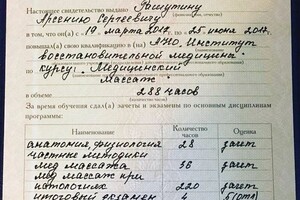 Настоящее свидетельство выдано Рашутину
Арсению Сергеевичу
в том, что он(а) с «19» марта 2017г по «25» июня 2017г
повышал(а) свою квалификацию в (на) АНО „Институт
восстановительной медицины
курсу: „Медицинский
массаж
в объеме 288 часов
За время обучения сдал(а) зачеты и экзамены по основным дисциплинам
программы:
Наименование Количество часов Оценка
анатомия, физиология 28 зачет
частные методики
мед массажа 36 зачет
мед массаж при
патологиях 220 зачет
итоговый экзамен 4 5(отл)